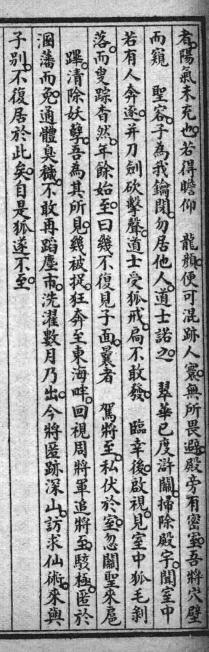 者陽氣未充也若得瞻仰　龍顏便可混跡人寰無所畏避殿旁有密室吾將穴壁
而窺　聖容子為我鑰閉勿居他人道士諾之　翠華已度滸關掃除殿宇聞室中
若有人奔逐并刀劍砍擊聲道士受狐戒扃不敢發　臨幸後啟視見室中狐毛剝
落而叟踪杳然年餘始至曰幾不復見子面曩者　駕將至私伏於室忽關聖來扈
蹕清除妖孽吾為其所見幾被捉狂奔至東海畔回視周將軍追將至駭極匿於
溷藩而免通體臭穢不敢再蹈塵市洗濯數月乃出今將匿跡深山訪求仙術來與
子別不復居於此矣自是狐遂不至